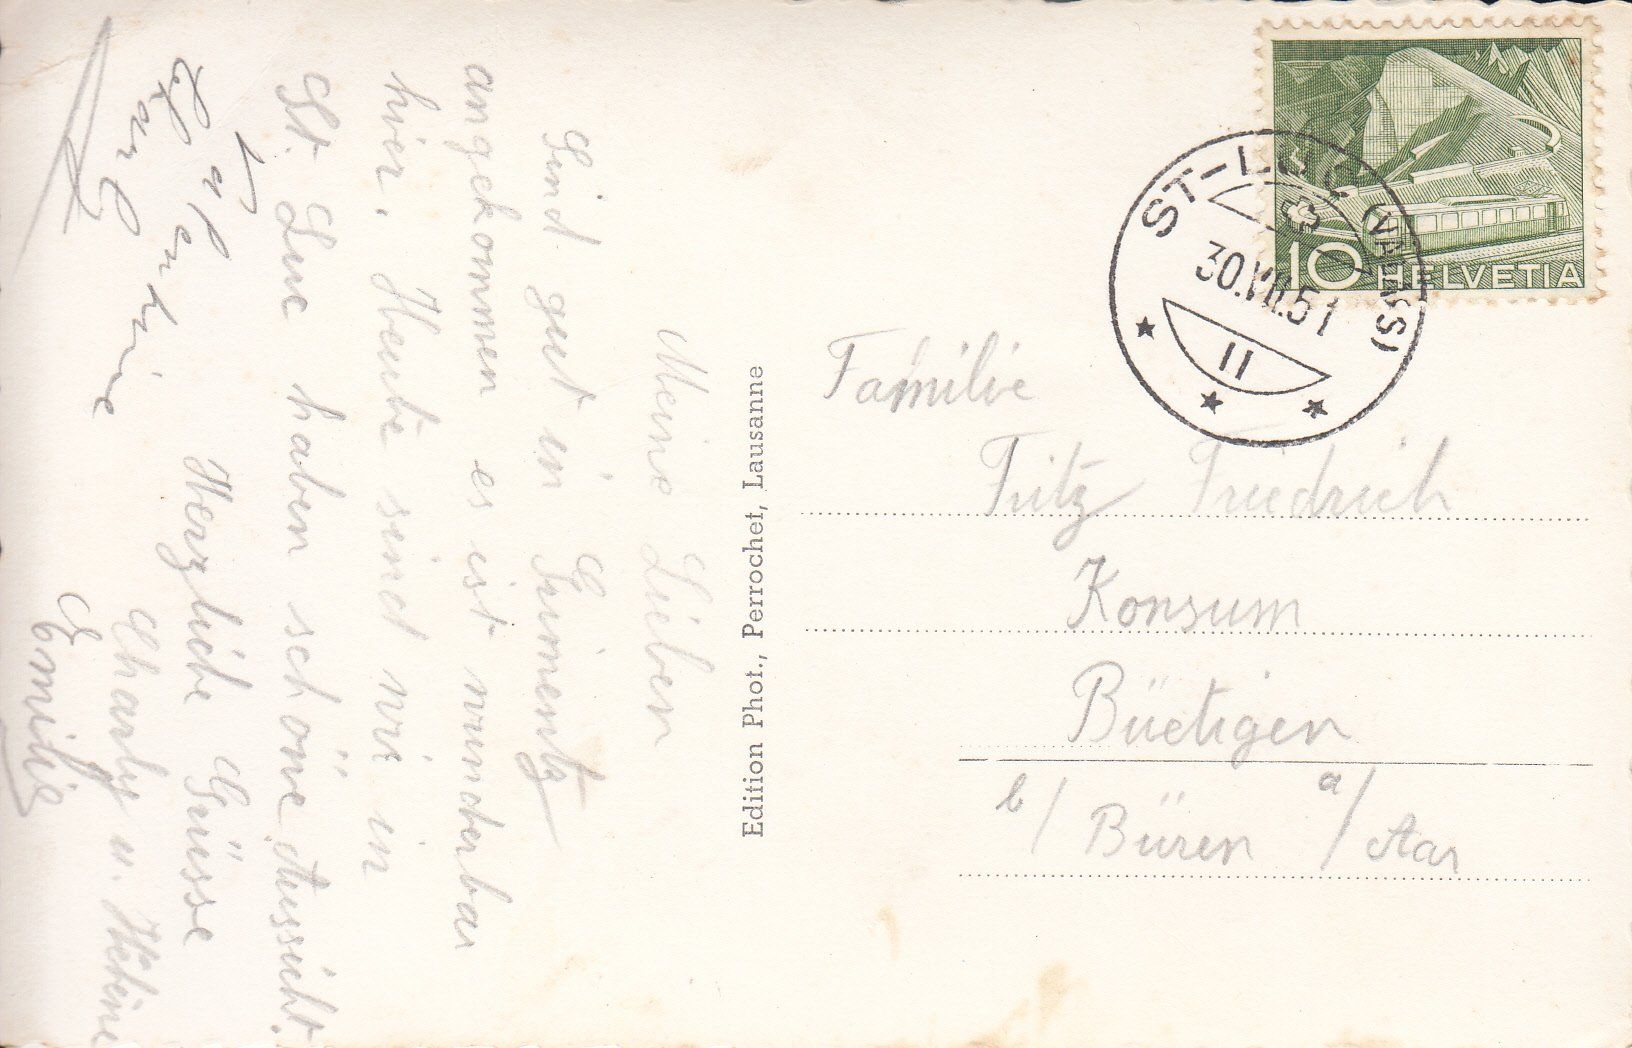 Meine Lieben
Sind gut in Grimentz
angekommen es ist wunderbar
hier. Heute sind wir in
St. Luc haben schöne Aussicht.
Herzliche Grüsse
Charly u.
Emilie
Edition Phot., Perrochet, Lausanne
10 HELVETIA
ST-LUC (VALAIS)
30.VII.51
11
Familie
Fritz Friedrich
Konsum
Büetigen
b/ Büren a/ Aar